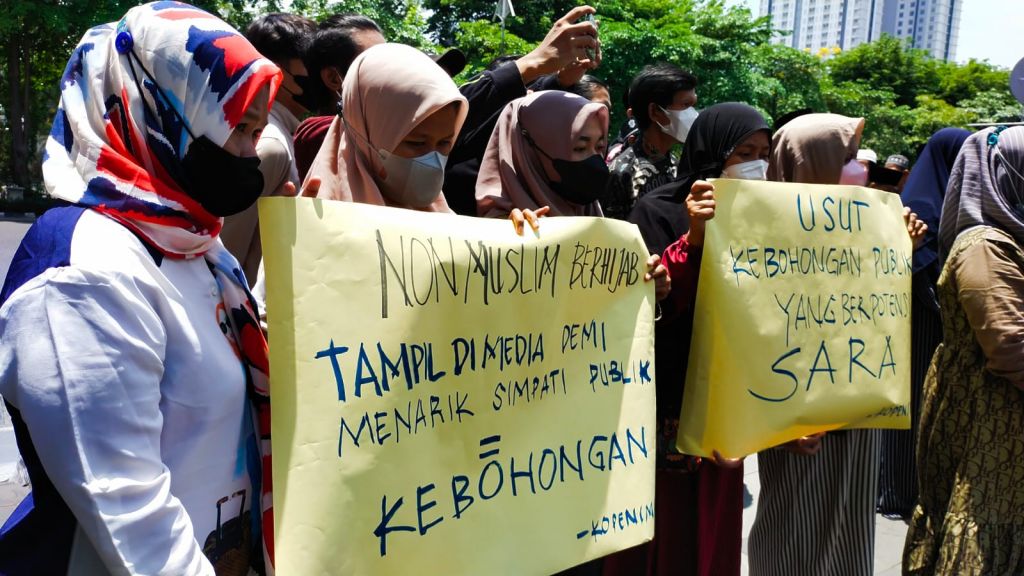 NON MUSLIM BERHIJAB
TAMPIL DI MEDIA DEMI
MENARIK SIMPATI PUBLIK
=
KEBOHONGAN
-KOPENIM
USUT
KEBOHONGAN PUBLIK
YANG BERPOTENS
SARA